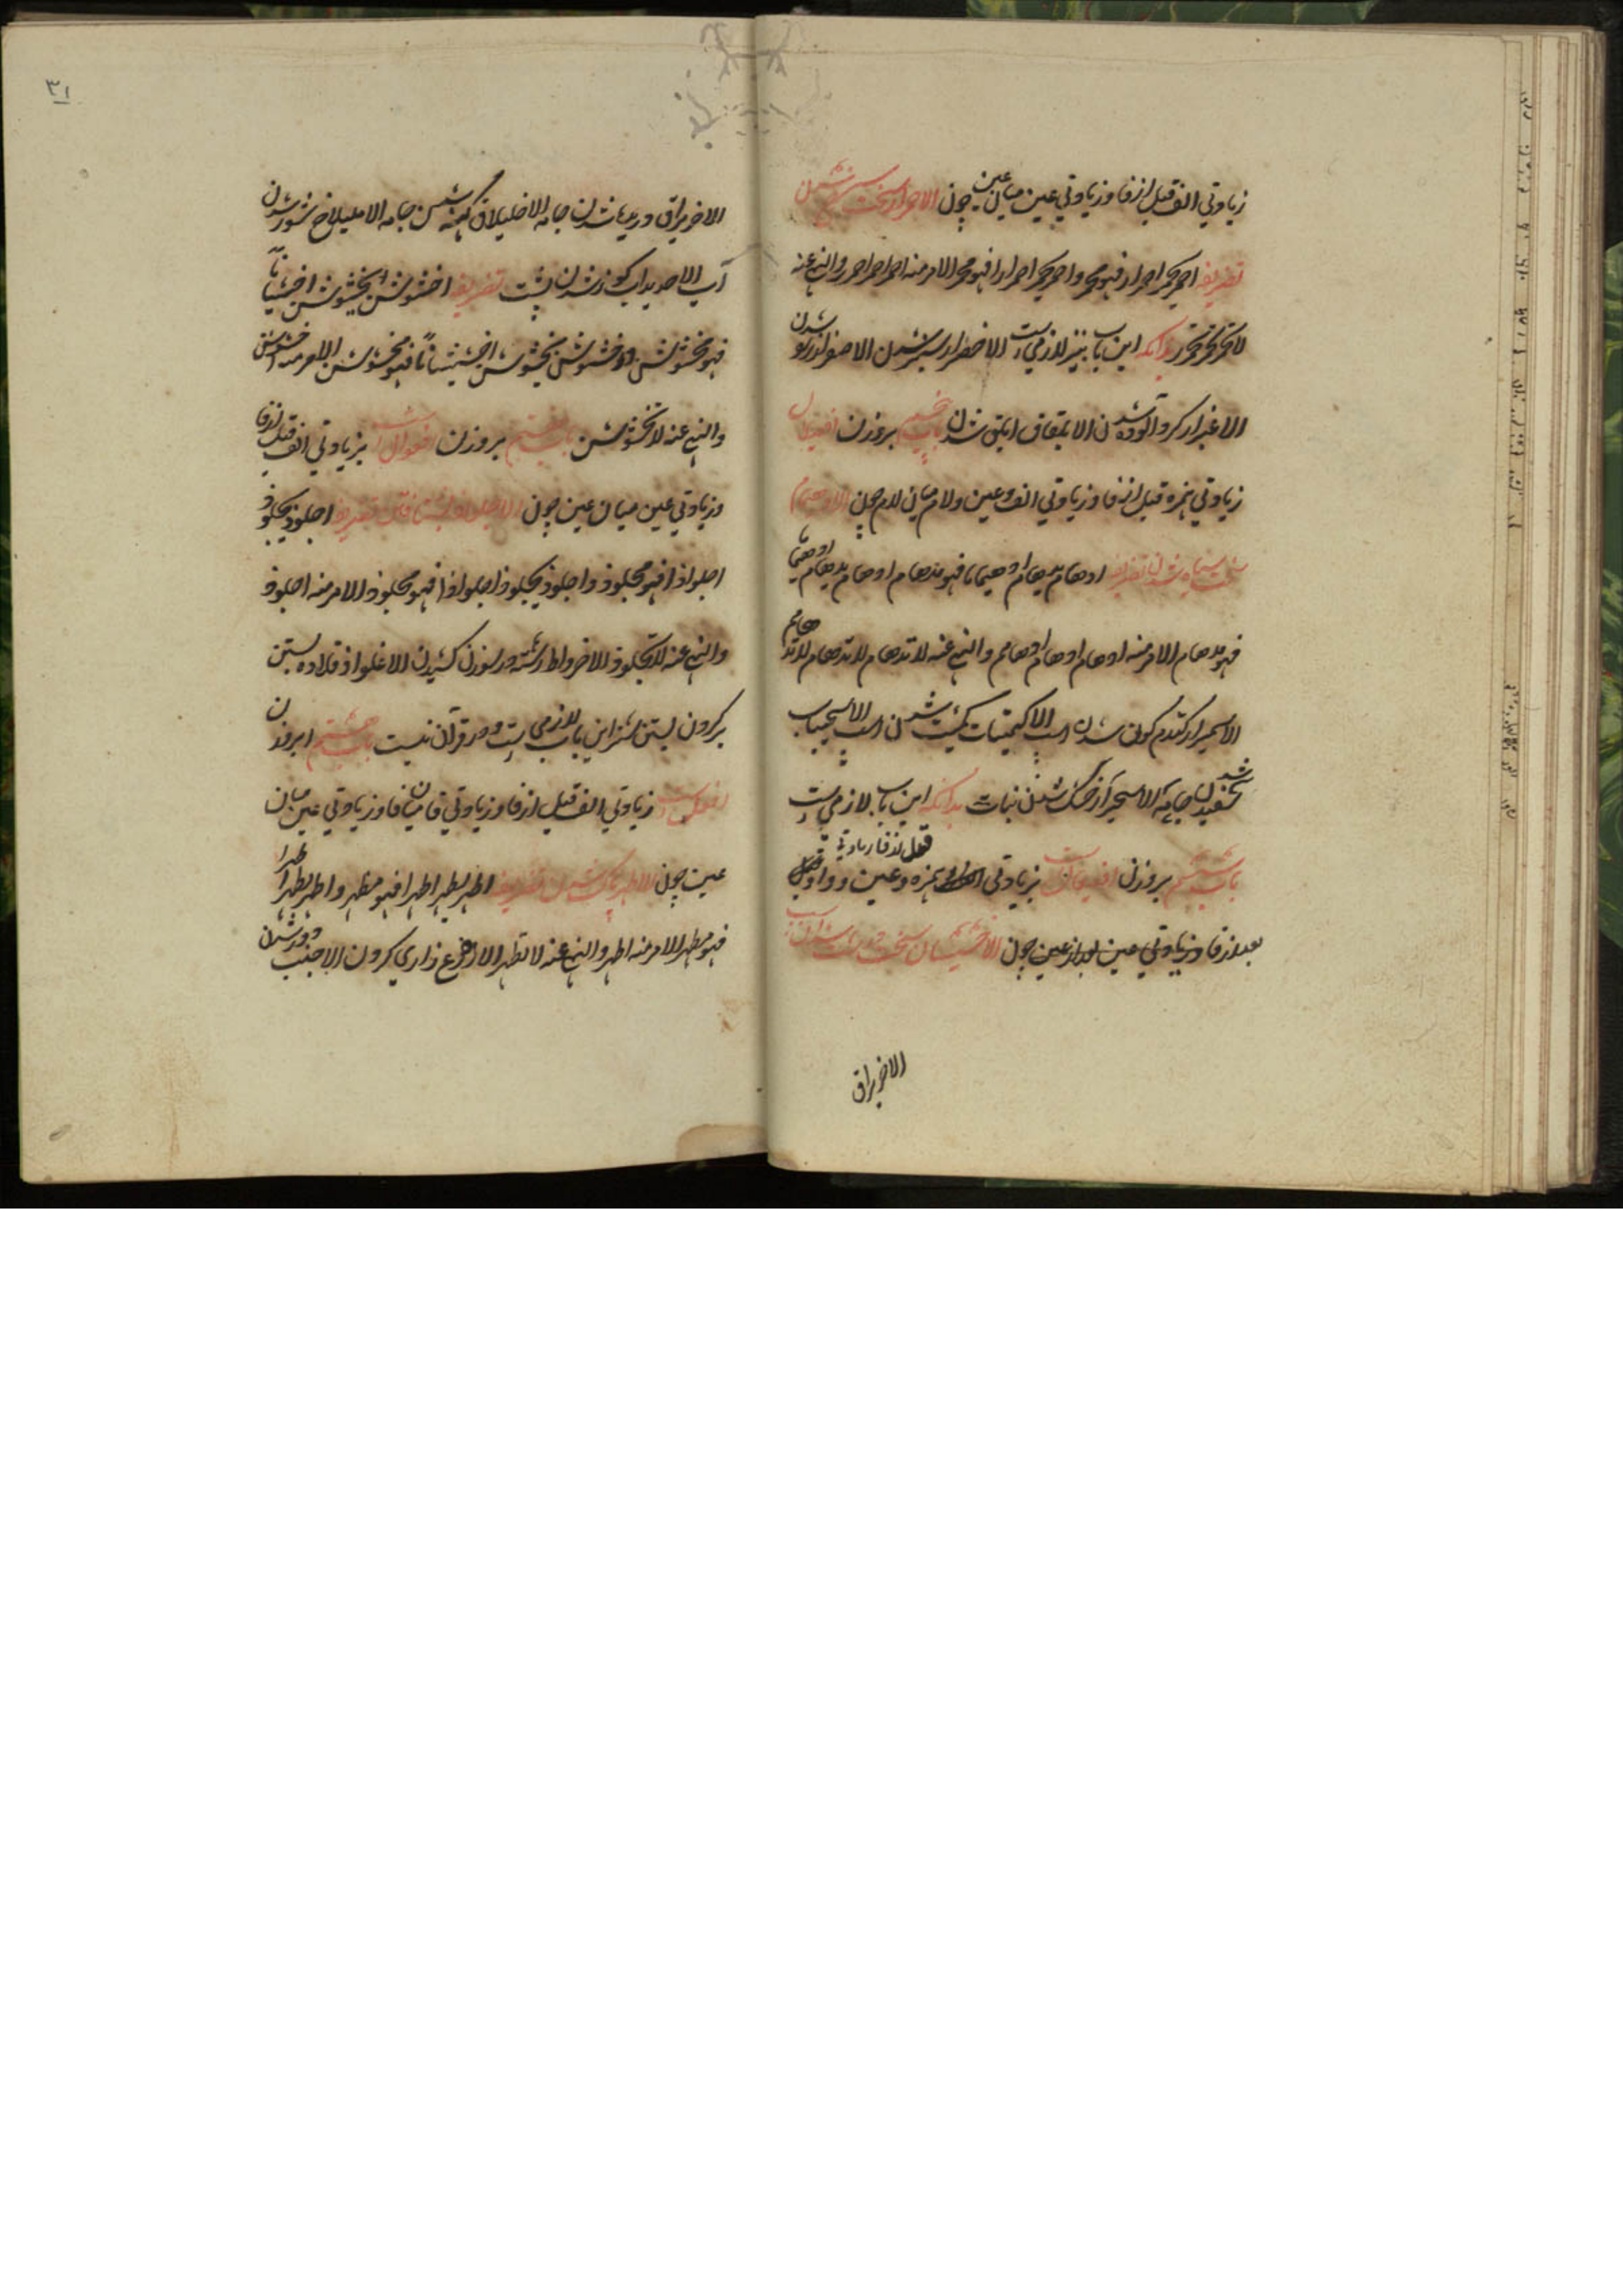 زیادتي الف قبل از فا وزیادتي عین میان عین چون الاحمرار سخت سرخ شدن
تصریفه احمر یحمر احمرارا فهو محمر واحمر یحمر احمرارا فهو محمر الامر منه احمر احمر احمرر والنهي عنه
لا تحمر لا تحمر لا تحمرر بدانکه این باب نیز لازمي است الاخضرار سبز شدن الاصفرار زرد شدن
الاغبرار گرد آلوده شدن الابلقاق ابلق شدن باب پنجم بر وزن افعیلال
زیادتي همزه قبل از فا وزیادتي الف وعین ولام میان لام چون الادهیمام
سخت سیاه شدن تصریفه ادهام یدهام ادهیماما فهو مدهام ادهام یدهام ادهیما
فهو مدهام الامر منه ادهام ادهام ادهامم والنهي عنه لا تدهام لا تدهام لا تدهامم
الاسمیرار گندم گون شدن اسب الاکمیتات کمیت شدن اسب الاسحیباب
سفید شدن جامه الاسحیرار خشک شدن نبات بدانکه این باب لازمي است
باب ششم بر وزن افعیعال است بزیادتي همزه وعین وواو قبل از فا زیادتي
بعد از فا وزیادتي عین بعد از عین چون الاخشیشان سخت درشت شدن
الاخریراق
۳۱
الاخریراق دریده شدن جامه الاخلیلاق کهنه شدن جامه الاملیلاح شور شدن
آب الاحدیداب کوز شدن پشت تصریفه اخشوشن یخشوشن اخشیشانا
فهو مخشوشن واخشوشن یخشوشن اخشیشانًا فهو مخشوشن الامر منه اخشوشن
والنهي عنه لا تخشوشن باب هفتم بر وزن افعوال است بزیادتي الف قبل از فا
وزیادتي عین میان عین چون الاجلواذ شتافتن تصریفه اجلوذ یجلوذ
اجلواذا فهو مجلوذ واجلوذ یجلوذ اجلواذا فهو مجلوذ الامر منه اجلوذ
والنهي عنه لا تجلوذ الاخرواط رشته در سوزن کشیدن الاعلواذ قلاده بستن
بر گردن بستن شتر این باب لازمي است ودر قرآن نیست باب هشتم بر وزن
افعل است زیادتي الف قبل از فا وزیادتي فا میان فا وزیادتي عین میان
عین چون الاطهر پاک شدن تصریفه اطهر یطهر اطهرا فهو مطهر واطهر یطهر اطهرا
فهو مطهر الامر منه اطهر والنهي عنه لا تطهر الاضرع زاري کردن الاجنب دور شدن